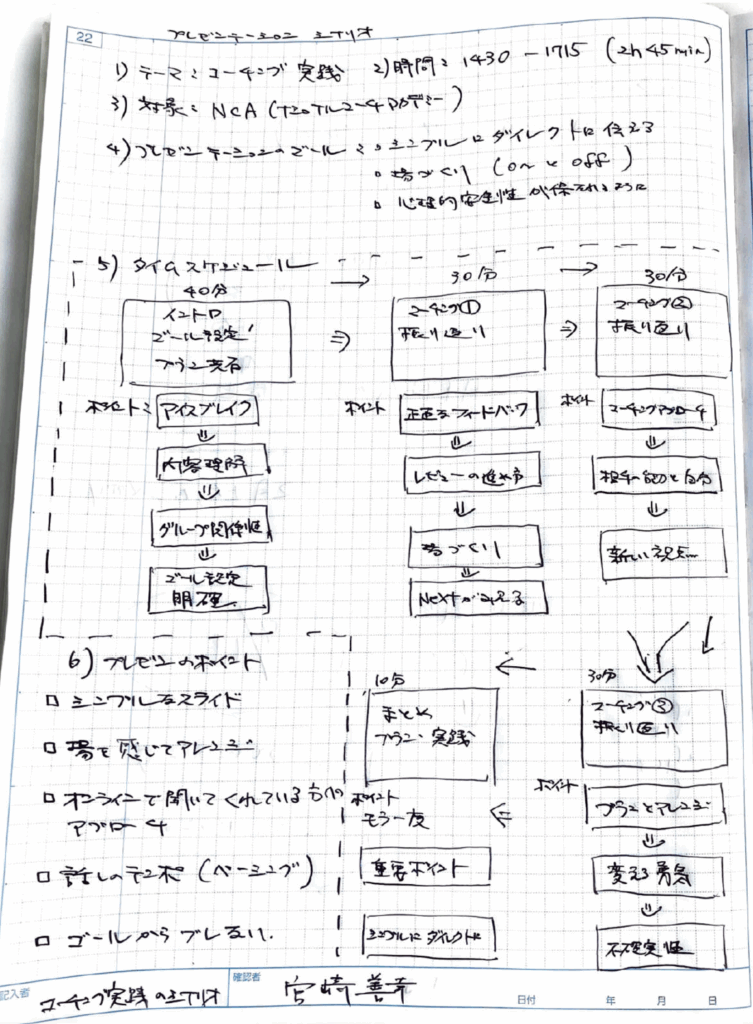 22
プレゼンテーション シナリオ
1) テーマ：コーチング実践 2) 時間：1430 - 1715 (2h 45min)
3) 対象：NCA
4) プレゼンテーションのゴール：□シンプルにダイレクトに伝える
□ 場づくり (on と off)
□ 心理的安全性が保たれるように
5) タイムスケジュール
40分
イントロ
ゴール設定
プラン共有
ポイント：
アイスブレイク
内容理解
グループ関係性
ゴール設定
明確
→
30分
コーチング①
振り返り
ポイント
正直なフィードバック
レビューの進め方
場づくり
Nextが みえる
→
30分
コーチング②
振り返り
ポイント
コーチングアプローチ
相手の能力と自分
新しい視点…
30分
コーチング③
振り返り
ポイント
プランとアレンジ
変える勇気
不確実性
10分
まとめ
プラン 実践
ポイント
もう一度
重要ポイント
シンプルに ダイレクトに
6) プレゼンのポイント
□ シンプルなスライド
□ 場を感じてアレンジ
□ オンラインで聞いてくれている方への
アプローチ
□ 話しのテンポ (ペーシング)
□ ゴールからブレない.
記入者
コーチング実践のシナリオ
確認者
宮崎善幸
日付 年 月 日